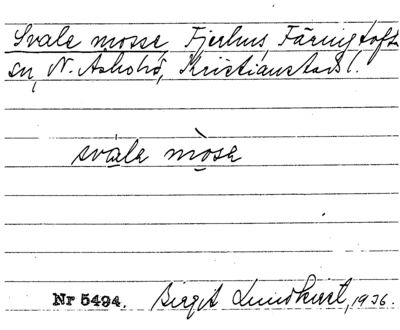 Svale mosse, Fjerhus, Färingtofta
sn, N. Åsbohd, Kristianstads l.
svale mòse
Nr 5494. Birgit Lundkvist, 1936.